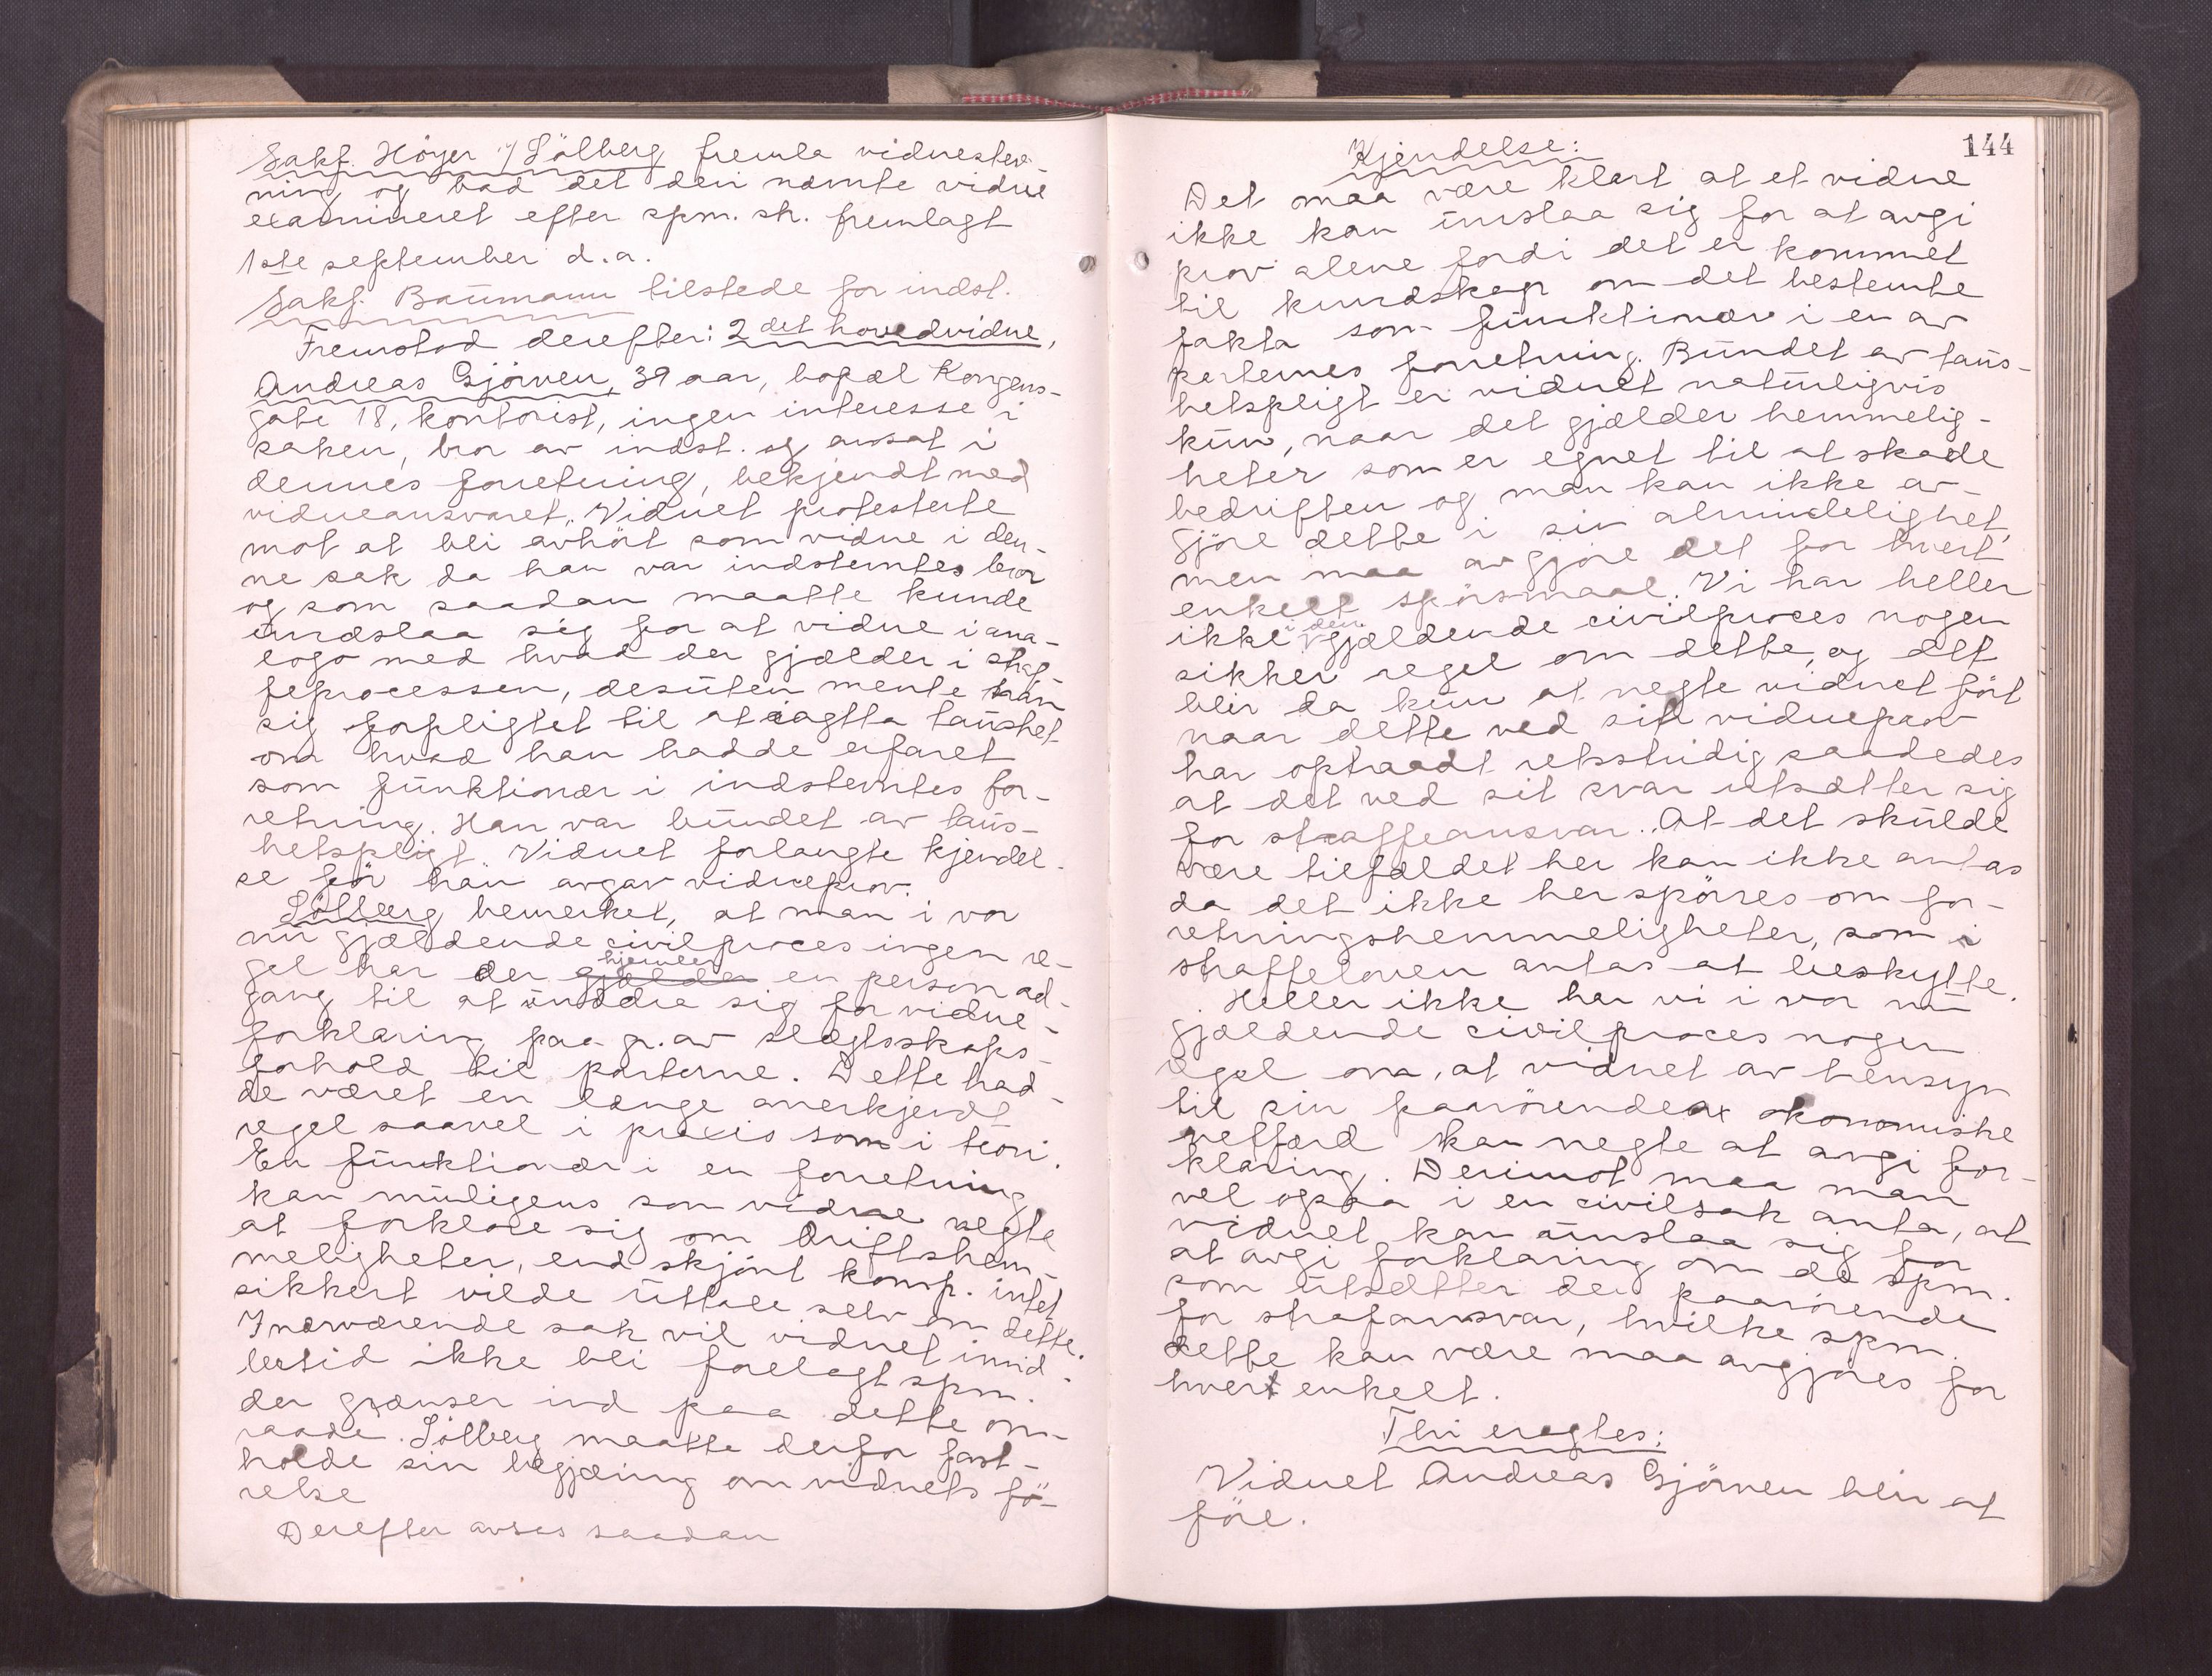 Sakf. Höyer v/ Sölberg fremla vidnestev-
ning og bad det deri nævnte vidne
examineret efter spm. sk. fremlagt
1ste september d.a.
Sakf. Baumann tilstede for indst.
Fremstod derefter: 2det hovedvidne,
Andreas Gjörven, 39 aar, bopæl Kongens-
gate 18, kontorist, ingen interesse i
saken, bror av indst. og ansat i
dennes forretning, bekjendt med
vidneansvaret. Vidnet protesterte
mot at bli avhört som vidne i den-
ne sak da han var indstemtes bror
og som saadan maatte kunde
undslaa sig for at vidne i ana-
logo med hvad der gjælder i straf-
feprocessen, desuten mente han
sig forpligtet til at iagtta taushet
om hvad han hadde erfaret
som funktionær i indstemtes for-
retning. Han var bundet av taus-
hetspligt. Vidnet forlangte kjendel-
se för han avgav vidneprov.
Sölberg bemerket, at man i vor
nu gjældende civilproces ingen re-
gel har der gjælder hjemler en person ad-
gang til at unddra sig for vidne-
forklaring paa gr. av slegtsskaps-
forhold til parterne. Dette had-
de været en længe anerkjendt
regel saavel i praxis som i teori.
En funktionær i en forretning
kan muligens som vidne negte
at forklare sig om driftshem-
meligheter, end skjönt komp. intet
sikkert vilde uttale selv om dette.
I nærværende sak vil vidnet imid-
lertid ikke bli forelagt spm.
der grænser ind paa dette om-
raade. Sölberg maatte derfor fast-
holde sin begjæring om vidnets fö-
relse
Derefter avsas saadan
144
Kjendelse:
Det maa være klart at et vidne
ikke kan unslaa sig for at avgi
prov alene fordi det er kommet
til kundskap om det bestemte
fakta som funktionær i en av
parternes forretning. Bundet av taus-
hetspligt er vidnet naturligvis
kun, naar det gjælder hemmelig-
heter som er egnet til at skade
bedriften og man kan ikke av-
gjöre dette i sin almindelighet,
men maa avgjöre det for hvert
enkelt spörsmaal. Vi har heller
ikke i den gjældende civilproces nogen
sikker regel om dette, og det
blir da kun at negte vidnet fört
naar dette ved sit vidneprov
har optraadt retsstridig saadedes
at det ved sit svar utsætter sig
for straffeansvar. At det skulde
være tilfældet her kan ikke antas
da det ikke her spörres om for-
retningshemmeligheter, som i
straffeloven antas at beskytte.
Heller ikke har vi i vor nu
gjældende civilproces nogen
regel om, at vidnet av hensyn
til sin paarörendes økonomiske
velfærd kan negte at avgi for-
klaring. Derimot maa man
vel ogsaa i en civilsak anta, at
vidnet kan unslaa sig for
at avgi forklaring om de spm.
som utsætter den paarörende
for strafansvar, hvilke spm.
dette kan være maa avgjöres for
hvert enkelt.
Thi eragtes:
Vidnet Andreas Gjörven blir at
före.